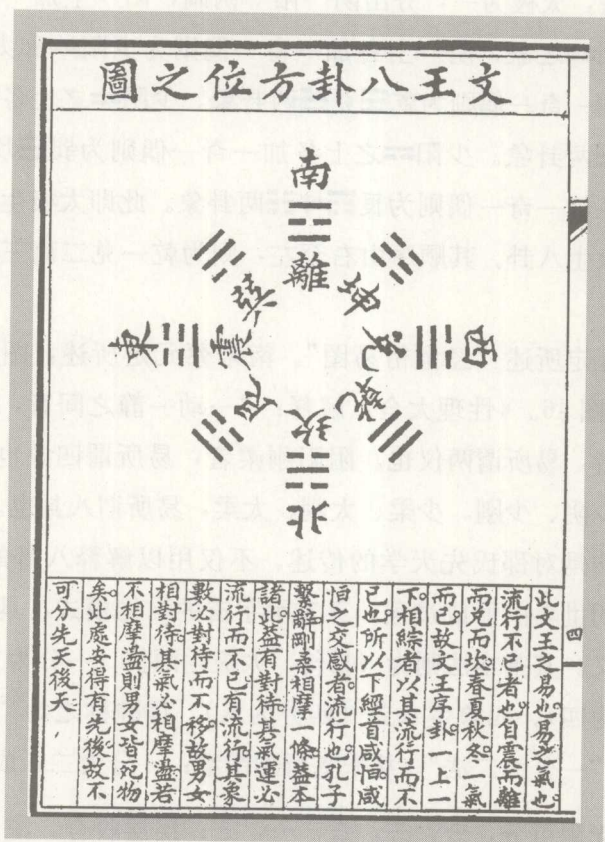 文王八卦方位之圖
南
離
巽
坤
東
震
兌
西
艮
乾
坎
北
四
此文王之易也易之氣也
流行不已者也自震而離
而兌而坎春夏秋冬一氣
而已故文王序卦一上一
下相綜者以其流行而不
已也所以下經首咸恒咸
恒之交感者流行也孔子
繫辭剛柔相摩一條蓋本
諸此蓋有對待其氣運必
流行而不已有流行其象
數必對待而不移故男女
相對待其氣必相摩盪若
不相摩盪則男女皆死物
矣此處安得有先後故不
可分先天後天